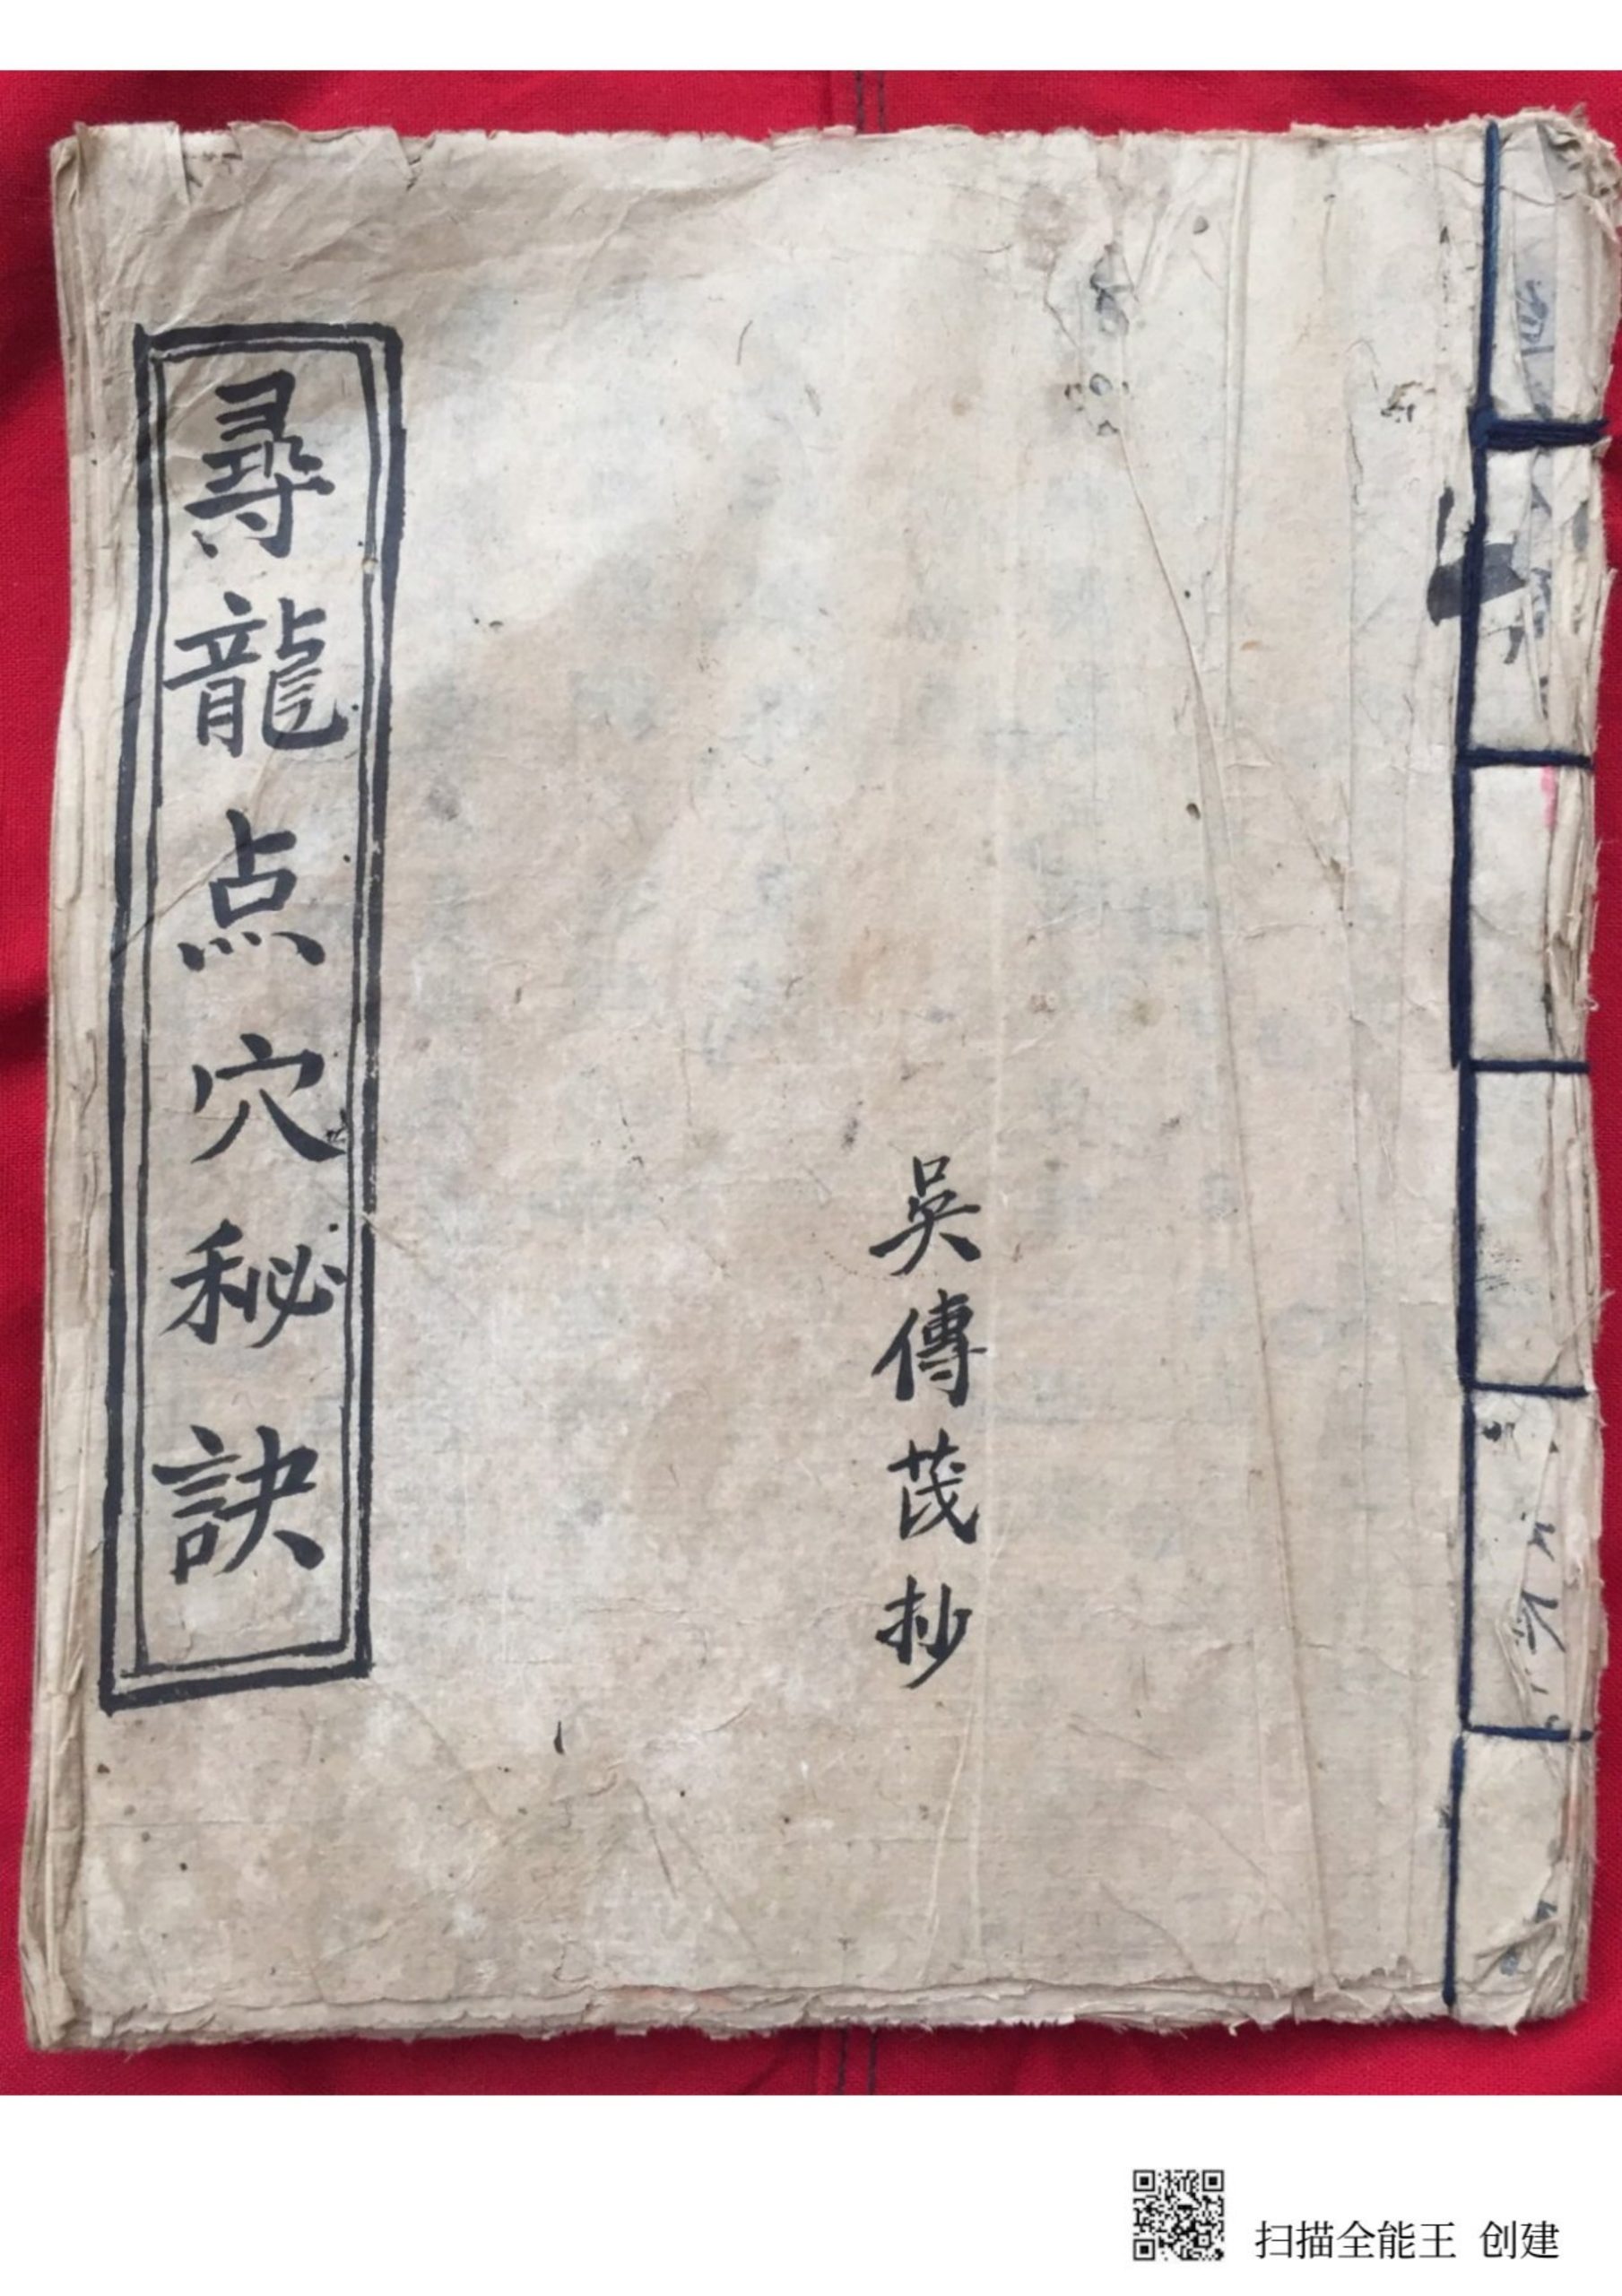 尋龍点穴秘訣
吳傳茂抄
扫描全能王 创建